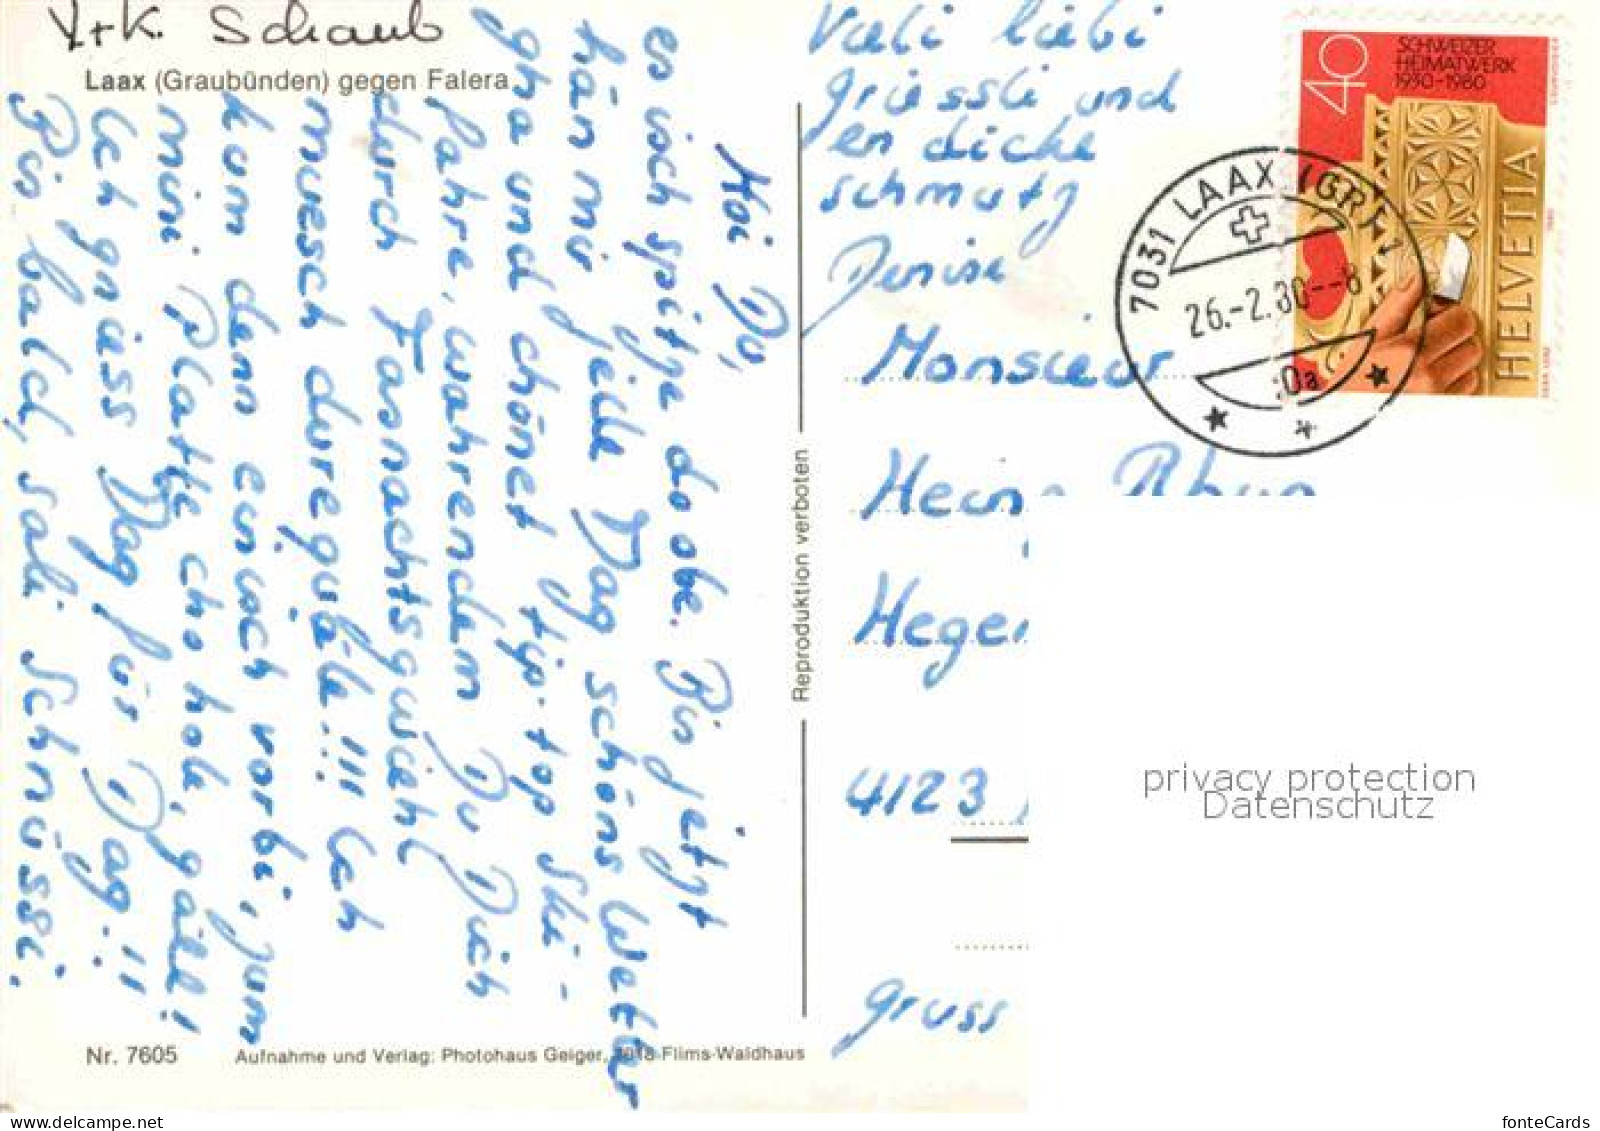 V+K. Schaub
Laax (Graubünden) gegen Falera
Hoi Du,
es isch spitze do obe. Bis jetzt
hän mir jede Dag schöns Wetter
gha und chönet tip-top Ski-
fahre, währendem Du Dich
durch Fasnachtsgwiehl
muesch dureguäle!!! Ich
kum denn einisch vorbi, zum
mini Platte cho hole, gäll!
Ich gniess Dag für Dag!!
Bis bald, sali Schnüssi.
Vieli liebi
Grüessli und
en dicke
schmutz
Denise
Nr. 7605
Aufnahme und Verlag: Photohaus Geiger, 7018 Flims-Waldhaus
Reproduktion verboten
40
SCHWEIZER
HEIMATWERK
1930-1980
HELVETIA
7031 LAAX (GR) 1
26.-2.80--8
Monsieur
Heinz
4123
gruss
privacy protection
Datenschutz
fonteCards